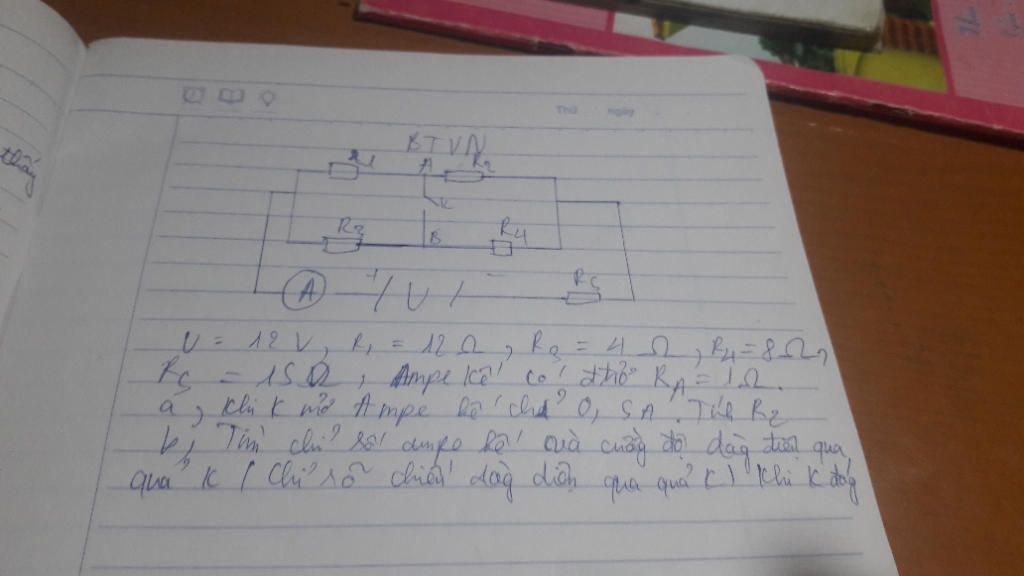 thấy
Thứ ngày
BTVN
R1 A R2
K
R3 B R4
A + U - R5
U = 12 V, R1 = 12 Ω, R3 = 4 Ω, R4 = 8 Ω,
R5 = 15 Ω, Ampe kế có điện trở RA = 1 Ω.
a, Khi K mở Ampe kế chỉ 0,5A. Tính R2
b, Tìm chỉ số ampe kế và cường độ dòng điện qua
qua K (Chỉ rõ chiều dòng điện qua qua K) Khi K đóng